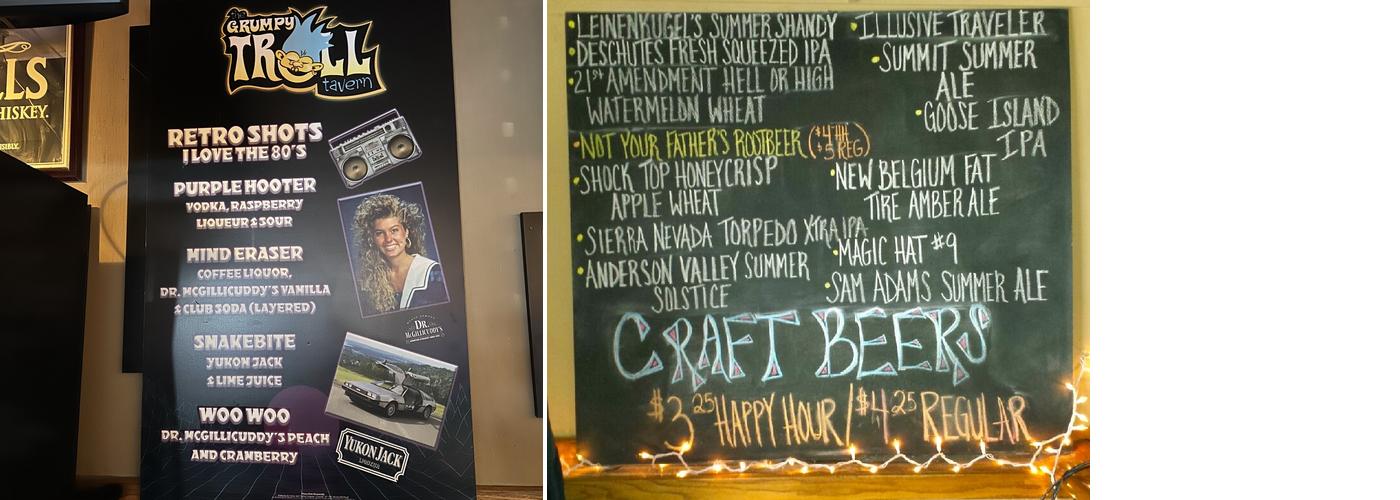 LLS
HISKEY.
the
GRUMPY
TROLL
tavern
RETRO SHOTS
I LOVE THE 80'S
PURPLE HOOTER
VODKA, RASPBERRY
LIQUEUR & SOUR
MIND ERASER
COFFEE LIQUOR,
DR. MCGILLICUDDY'S VANILLA
& CLUB SODA (LAYERED)
DR.
MCGILLICUDDY'S
SNAKEBITE
YUKON JACK
& LIME JUICE
WOO WOO
DR. MCGILLICUDDY'S PEACH
AND CRANBERRY
YUKON JACK
• LEINENKUGEL'S SUMMER SHANDY
• DESCHUTES FRESH SQUEEZED IPA
• 21st AMENDMENT HELL OR HIGH
WATERMELON WHEAT
• NOT YOUR FATHER'S ROOTBEER ($4 HH
$5 REG)
• SHOCK TOP HONEYCRISP
APPLE WHEAT
• SIERRA NEVADA TORPEDO XTRA IPA
• ANDERSON VALLEY SUMMER
SOLSTICE
• ILLUSIVE TRAVELER
• SUMMIT SUMMER
ALE
• GOOSE ISLAND
IPA
• NEW BELGIUM FAT
TIRE AMBER ALE
• MAGIC HAT #9
• SAM ADAMS SUMMER ALE
CRAFT BEERS
$3.25 HAPPY HOUR / $4.25 REGULAR